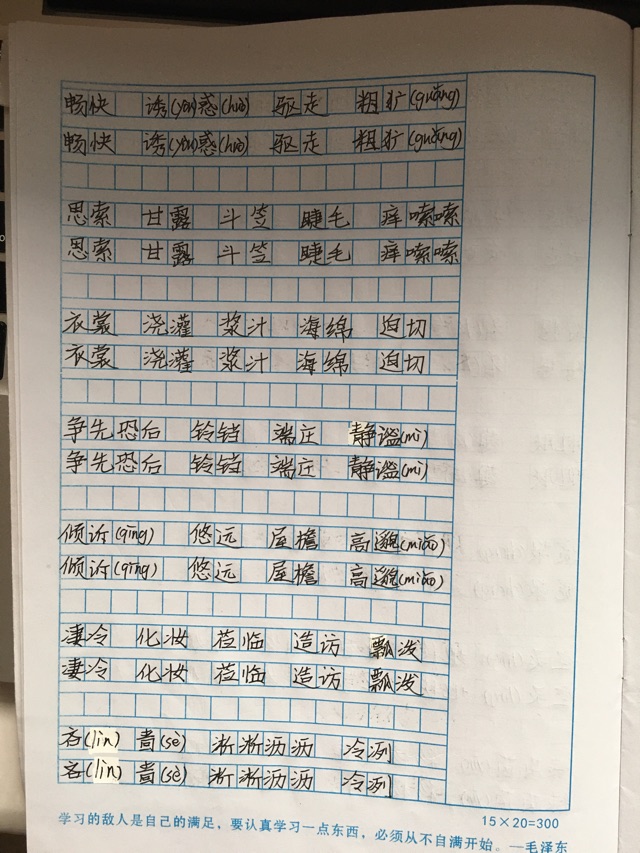 畅快 诱(yòu)惑(huò) 驱走 粗犷(guǎng)
畅快 诱(yòu)惑(huò) 驱走 粗犷(guǎng)
思索 甘露 斗笠 睫毛 痒嗦嗦
思索 甘露 斗笠 睫毛 痒嗦嗦
衣裳 浇灌 浆汁 海绵 迫切
衣裳 浇灌 浆汁 海绵 迫切
争先恐后 铃铛 端庄 静谧(mì)
争先恐后 铃铛 端庄 静谧(mì)
倾诉(qīng) 悠远 屋檐 高邈(miǎo)
倾诉(qīng) 悠远 屋檐 高邈(miǎo)
凄冷 化妆 莅临 造访 飘泼
凄冷 化妆 莅临 造访 飘泼
吝(lìn) 啬(sè) 淅淅沥沥 冷冽
吝(lìn) 啬(sè) 淅淅沥沥 冷冽
15×20=300
学习的敌人是自己的满足，要认真学习一点东西，必须从不自满开始。—毛泽东